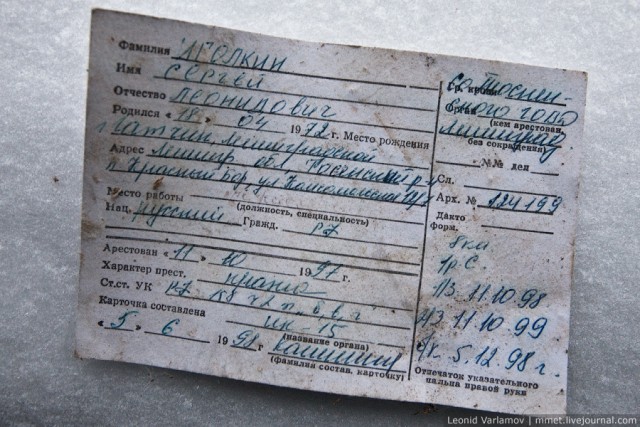 Фамилия ИГОЛКИН
Имя СЕРГЕЙ
Отчество ЛЕОНИДОВИЧ
Родился « 19 » 04 1972 г. Место рождения
г. Гатчина, Ленинградской
Адрес Ленингр. обл. Тосненский р-н
п. Красный бор, ул. Комсомольская
Место работы
(должность, специальность)
Нац. русский Гражд. РФ
Арестован « 11 » 10 1997 г.
Характер прест. кража
Ст.ст. УК РФ 158 ч 2 п. б, в, г
Карточка составлена ИК-15
(название органа)
« 5 » 6 1998 г.
(фамилия состав. карточку)
Орган
(кем арестован,
без сокращения)
№№ дел
Сл.
Арх. № 124199
Дакто
форм.
1р. С.
11.10.98
11.10.99
5.12.98 г.
Отпечаток указательного
пальца правой руки
Leonid Varlamov | mmet.livejournal.com